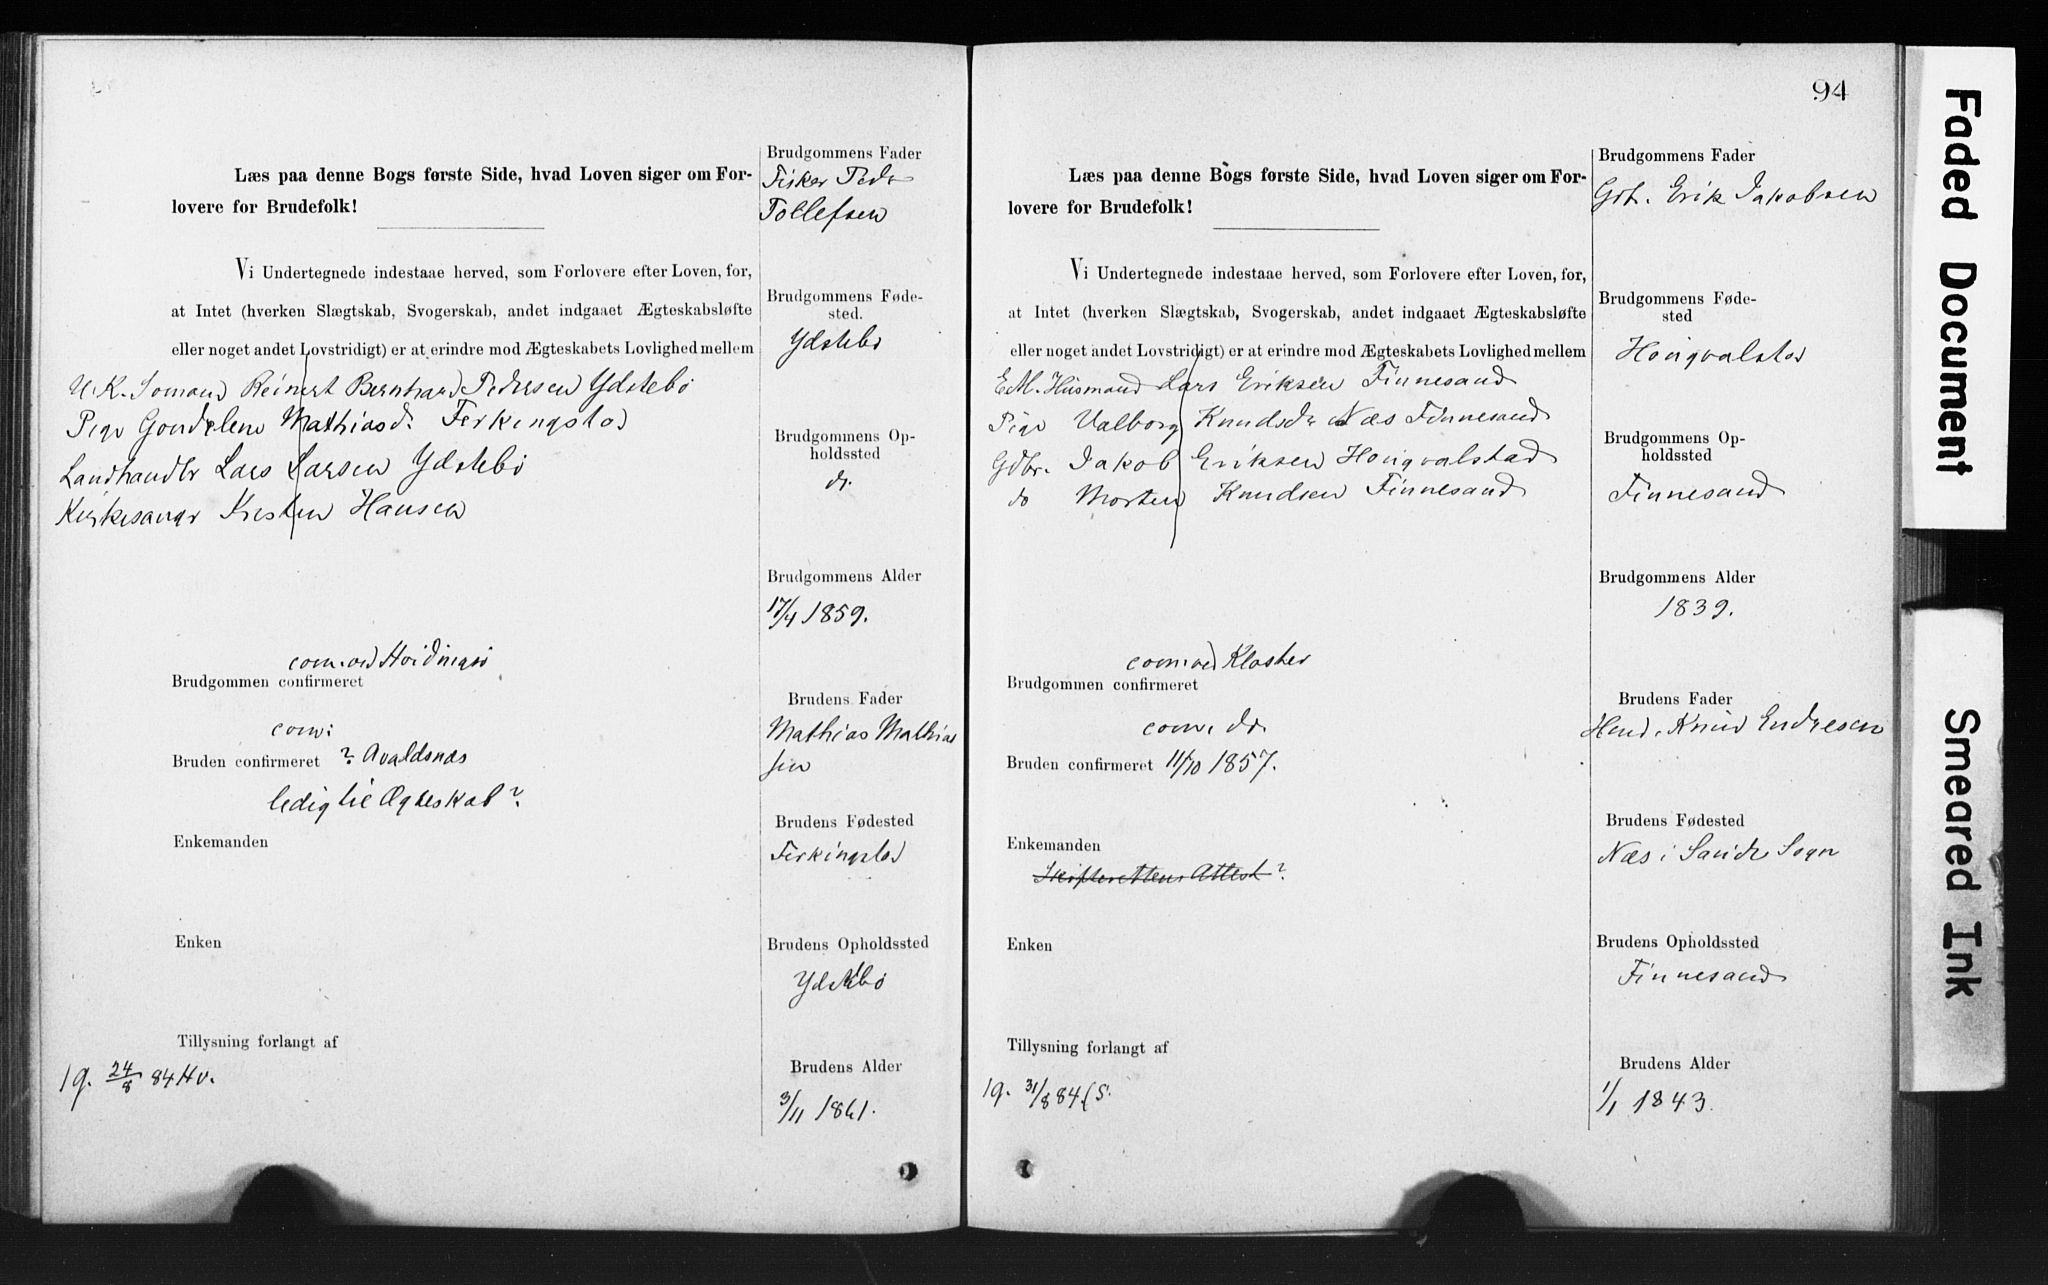 Læs paa denne Bogs første Side, hvad Loven siger om For-
lovere for Brudefolk!
Vi Undertegnede indestaae herved, som Forlovere efter Loven, for,
at Intet (hverken Slægtskab, Svogerskab, andet indgaaet Ægteskabsløfte
eller noget andet Lovstridigt) er at erindre mod Ægteskabets Lovlighed mellem
U.K. Sömand Reinert Bernhard Pedersen Ydstebö
Pige Mathiasd. Ferkingstad
Landhandlr Lars Larsen Ydstebö
Kirkesangr Kristen Hansen
com. ved Hvidingsö
Brudgommen confirmeret
com:
Bruden confirmeret ? Avaldsnæs
ledig til Ægteskab?
Enkemanden
Enken
Tillysning forlangt af
19. 24/8 84 Hv.
Brudgommens Fader
Fisker Pedr
Tollefsen
Brudgommens Føde-
sted.
Ydstebö
Brudgommens Op-
holdssted
do.
Brudgommens Alder
17/4 1859.
Brudens Fader
Mathias Mathias
sen
Brudens Fødested
Ferkingstad
Brudens Opholdssted
Ydstebö
Brudens Alder
3/11 1861.
94
Læs paa denne Bogs første Side, hvad Loven siger om For-
lovere for Brudefolk!
Vi Undertegnede indestaae herved, som Forlovere efter Loven, for,
at Intet (hverken Slægtskab, Svogerskab, andet indgaaet Ægteskabsløfte
eller noget andet Lovstridigt) er at erindre mod Ægteskabets Lovlighed mellem
E.M. Husmand Lars Eriksen Finnesand
Pige Valborg Knudsdr Næs Finnesand
Gdbr. Jakob Eriksen
do Morten Knudsen Finnesand
com. ved Kloster
Brudgommen confirmeret
com. do.
Bruden confirmeret 11/10 1857.
Enkemanden
Skifterettens Attest?
Enken
Tillysning forlangt af
19. 31/8 84. S.
Brudgommens Fader
Gdb. Erik Jakobsen
Brudgommens Føde-
sted
Brudgommens Op-
holdssted
Finnesand
Brudgommens Alder
1839.
Brudens Fader
Hmd. Knud Endresen
Brudens Fødested
Næs i Sands Sogn
Brudens Opholdssted
Finnesand
Brudens Alder
1/1 1843.
Faded Document
Smeared Ink